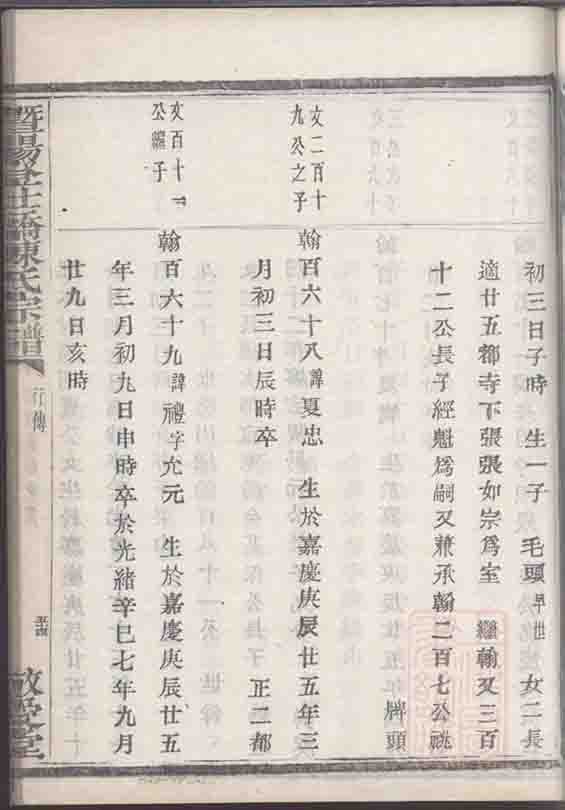 初三日子時 生一子 毛頭早世 女二長
適廿五都寺下張張如宗爲室 繼翰又三百
十二公長子經魁爲嗣又兼承翰二百七公祧
牌頭
文二百十
九公之子
翰百六十八諱夏忠 生於嘉慶庚辰廿五年三
月初三日辰時卒 正二都
文百十
公繼子
翰百六十九諱禮字允元 生於嘉慶庚辰廿五
年三月初九日申時卒於光緒辛巳七年九月
廿九日亥時
暨陽 橋陳氏宗譜
行傳
敬愛堂